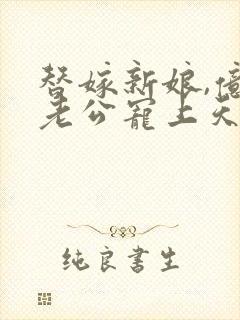 替嫁新娘,億
老公寵上天
纯良書生